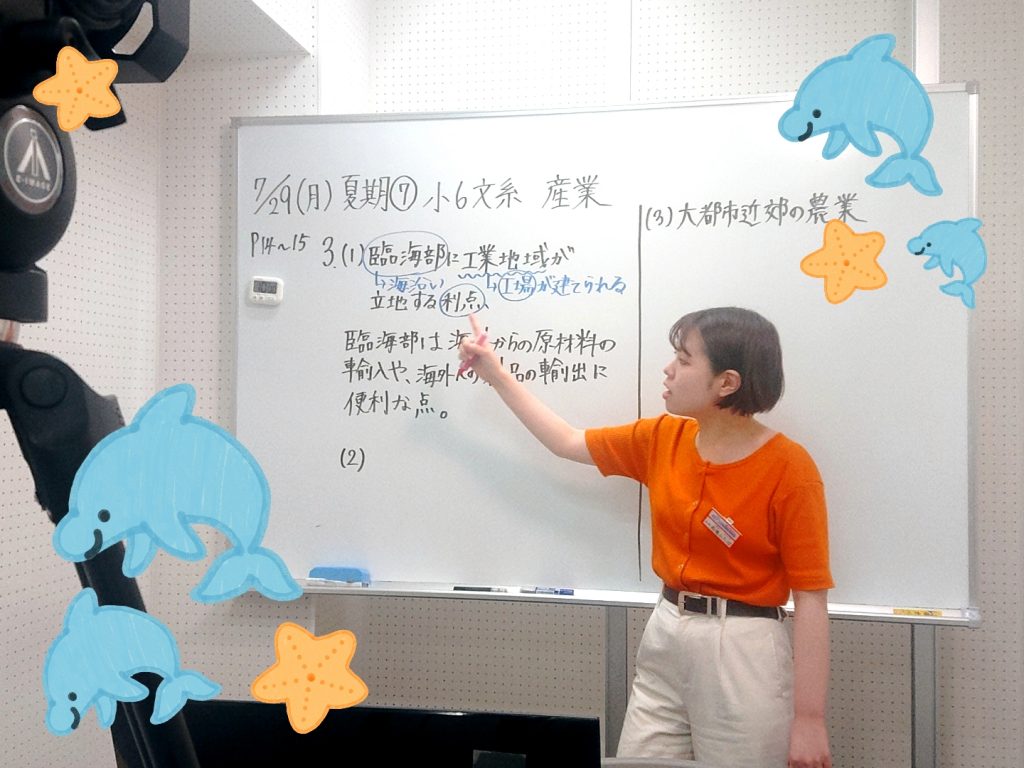 7/29(月) 夏期⑦ 小6文系 産業
P14~15
3.(1) 臨海部に工業地域が
↳海沿い ↳工場が建てられる
立地する利点
臨海部は海 からの原材料の
輸入や、海外 の 品の輸出に
便利な点。
(2)
(3) 大都市近郊の農業
E-IMAGE